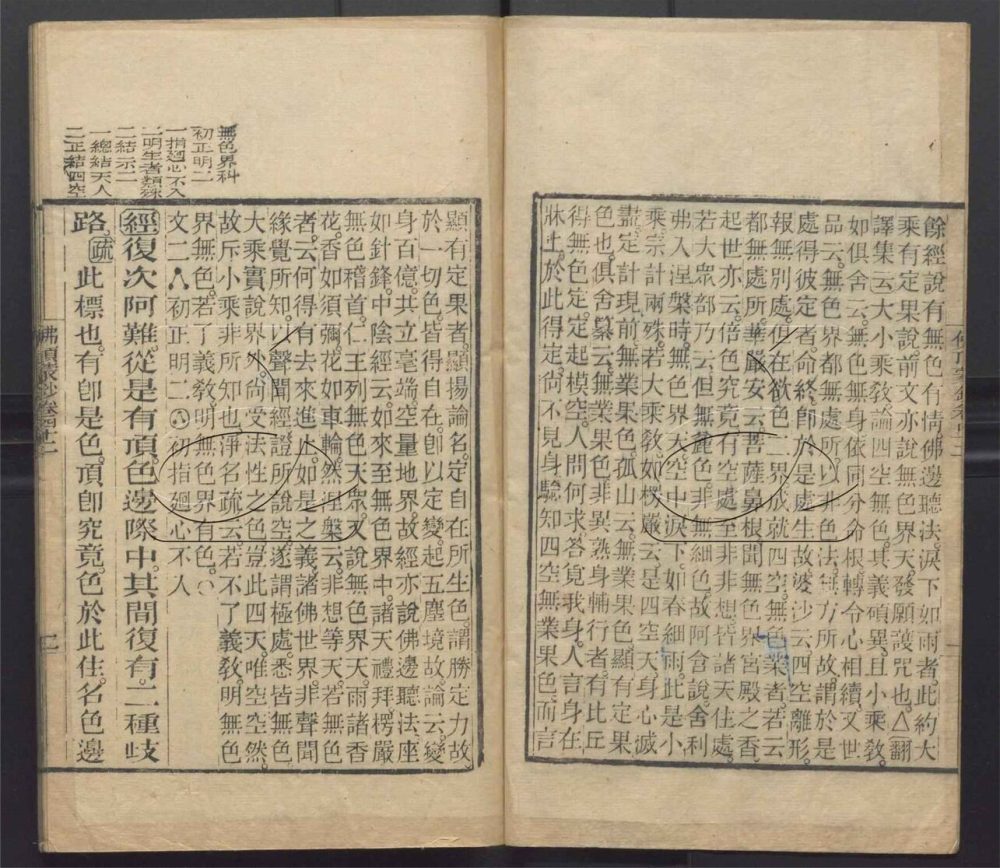 餘經說有無色有情佛邊聽法淚下如雨者此約大
乘有定果說前文亦說無色界天發願護咒也△翻
譯集云大小乘教論四空無色其義碩異且小乘教
如俱舍云無色無身依同分命根轉令心相續又世
品云無色界都無處所以非色法無方所故謂於是
處得彼定者命終即於是處生故婆沙云四空離形
報無別處所但在欲色二界成就四空無色業者若云
都無處所華嚴安云菩薩鼻根聞無色界宮殿之香
起世亦云倍色究竟有空處至非非想皆諸天住處
若大眾部乃云但無麤色非無細色故阿含說舍利
弗入涅槃時無色界天空中淚下如春細雨此是小
乘宗計兩殊若大乘教如楞嚴云是四空天身心滅
盡定計現前無業果色孤山云無業果色顯有定果
色也俱舍纂云無業果色非異熟身輔行者有比丘
得無色定定起模空人問何求答覓我身人言身在
牀上於此得定尚不見身驗知四空無業果色而言
顯有定果者顯揚論名定自在所生色謂勝定力故
於一切色皆得自在即以定變起五塵境故論云變
身百億共立毫端空量地界故經亦說佛邊聽法座
如針鋒中陰經云如來至無色界中諸天禮拜楞嚴
無色稽首仁王列無色天眾又說無色界天雨諸香
花香如須彌花如車輪然涅槃云非想等天若無色
者云何得有去來進止如是之義諸佛世界非聲聞
緣覺所知以聲聞經證所說空遂謂極處悉皆無色
大乘實說界外尚受法性之色豈此四天唯空空然
故斥小乘非所知也淨名疏云若不了義教明無色
界無色若了義教明無色界有色
文二 初正明二 初指廻心不入
經復次阿難從是有頂色邊際中其間復有二種歧
路疏此標也有即是色頂即究竟色於此住名色邊
無色界科
初正明二
一指廻心不入
二明生者類殊
二結示二
一總結天人
二正結四空